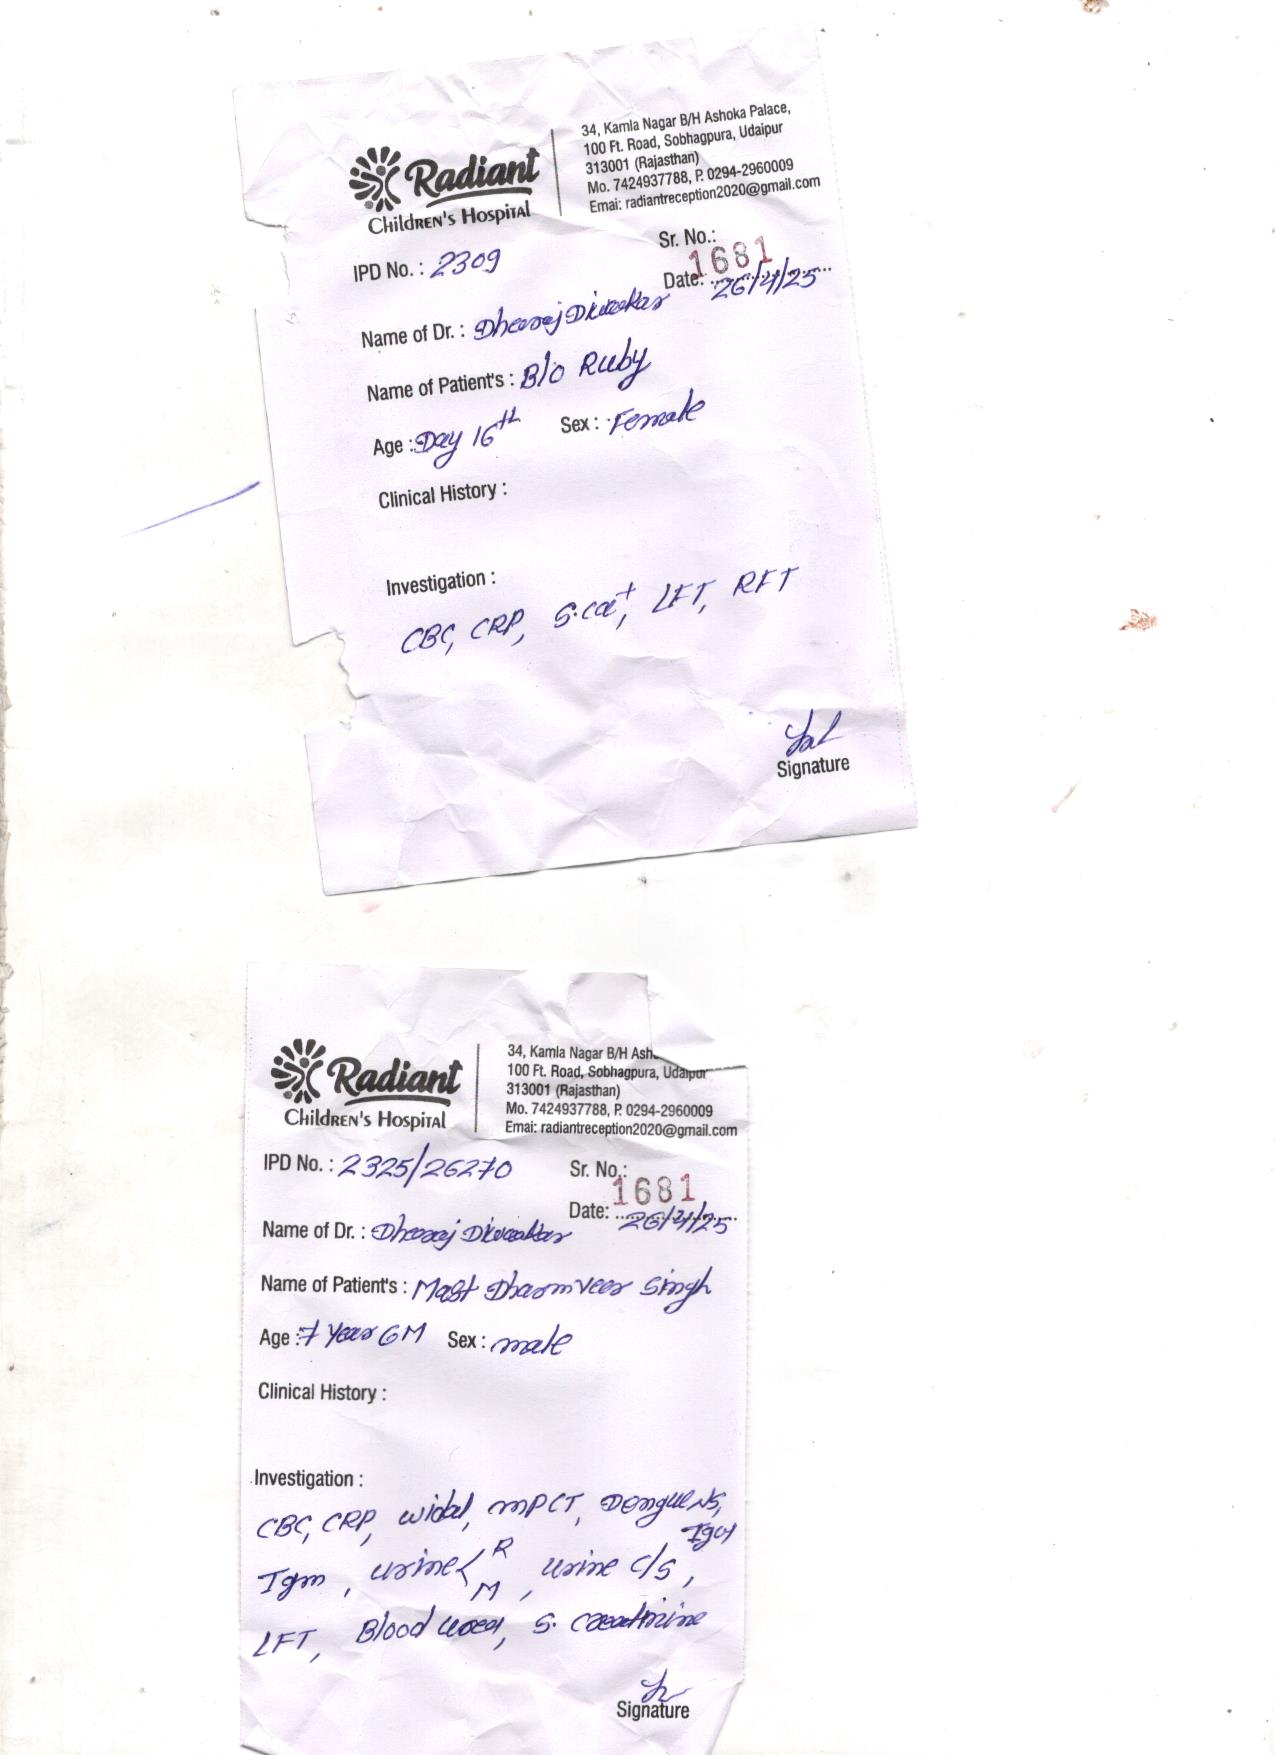 Radiant
Children's Hospital
34, Kamla Nagar B/H Ashoka Palace,
100 Ft. Road, Sobhagpura, Udaipur
313001 (Rajasthan)
Mo. 7424937788, P. 0294-2960009
Emai: radiantreception2020@gmail.com
IPD No. : 2309
Sr. No.: 1681
Date: 26/4/25
Name of Dr. : Dheeraj Diwakar
Name of Patient's : B/o Ruby
Age : Day 16th Sex : Female
Clinical History :
Investigation :
CBC, CRP, S.ca+, LFT, RFT
Signature
Radiant
Children's Hospital
34, Kamla Nagar B/H Ash
100 Ft. Road, Sobhagpura, Udaipur
313001 (Rajasthan)
Mo. 7424937788, P. 0294-2960009
Emai: radiantreception2020@gmail.com
IPD No. : 2325/26270
Sr. No.: 1681
Date: 26/4/25
Name of Dr. : Dheeraj Diwakar
Name of Patient's : Mast Dharmveer Singh
Age : 7 Year 6M Sex : male
Clinical History :
Investigation :
CBC, CRP, widal, MPCT, Dengue NS,
IgG
Igm, urine < R M, urine c/s,
LFT, Blood urea, S. creatinine
Signature